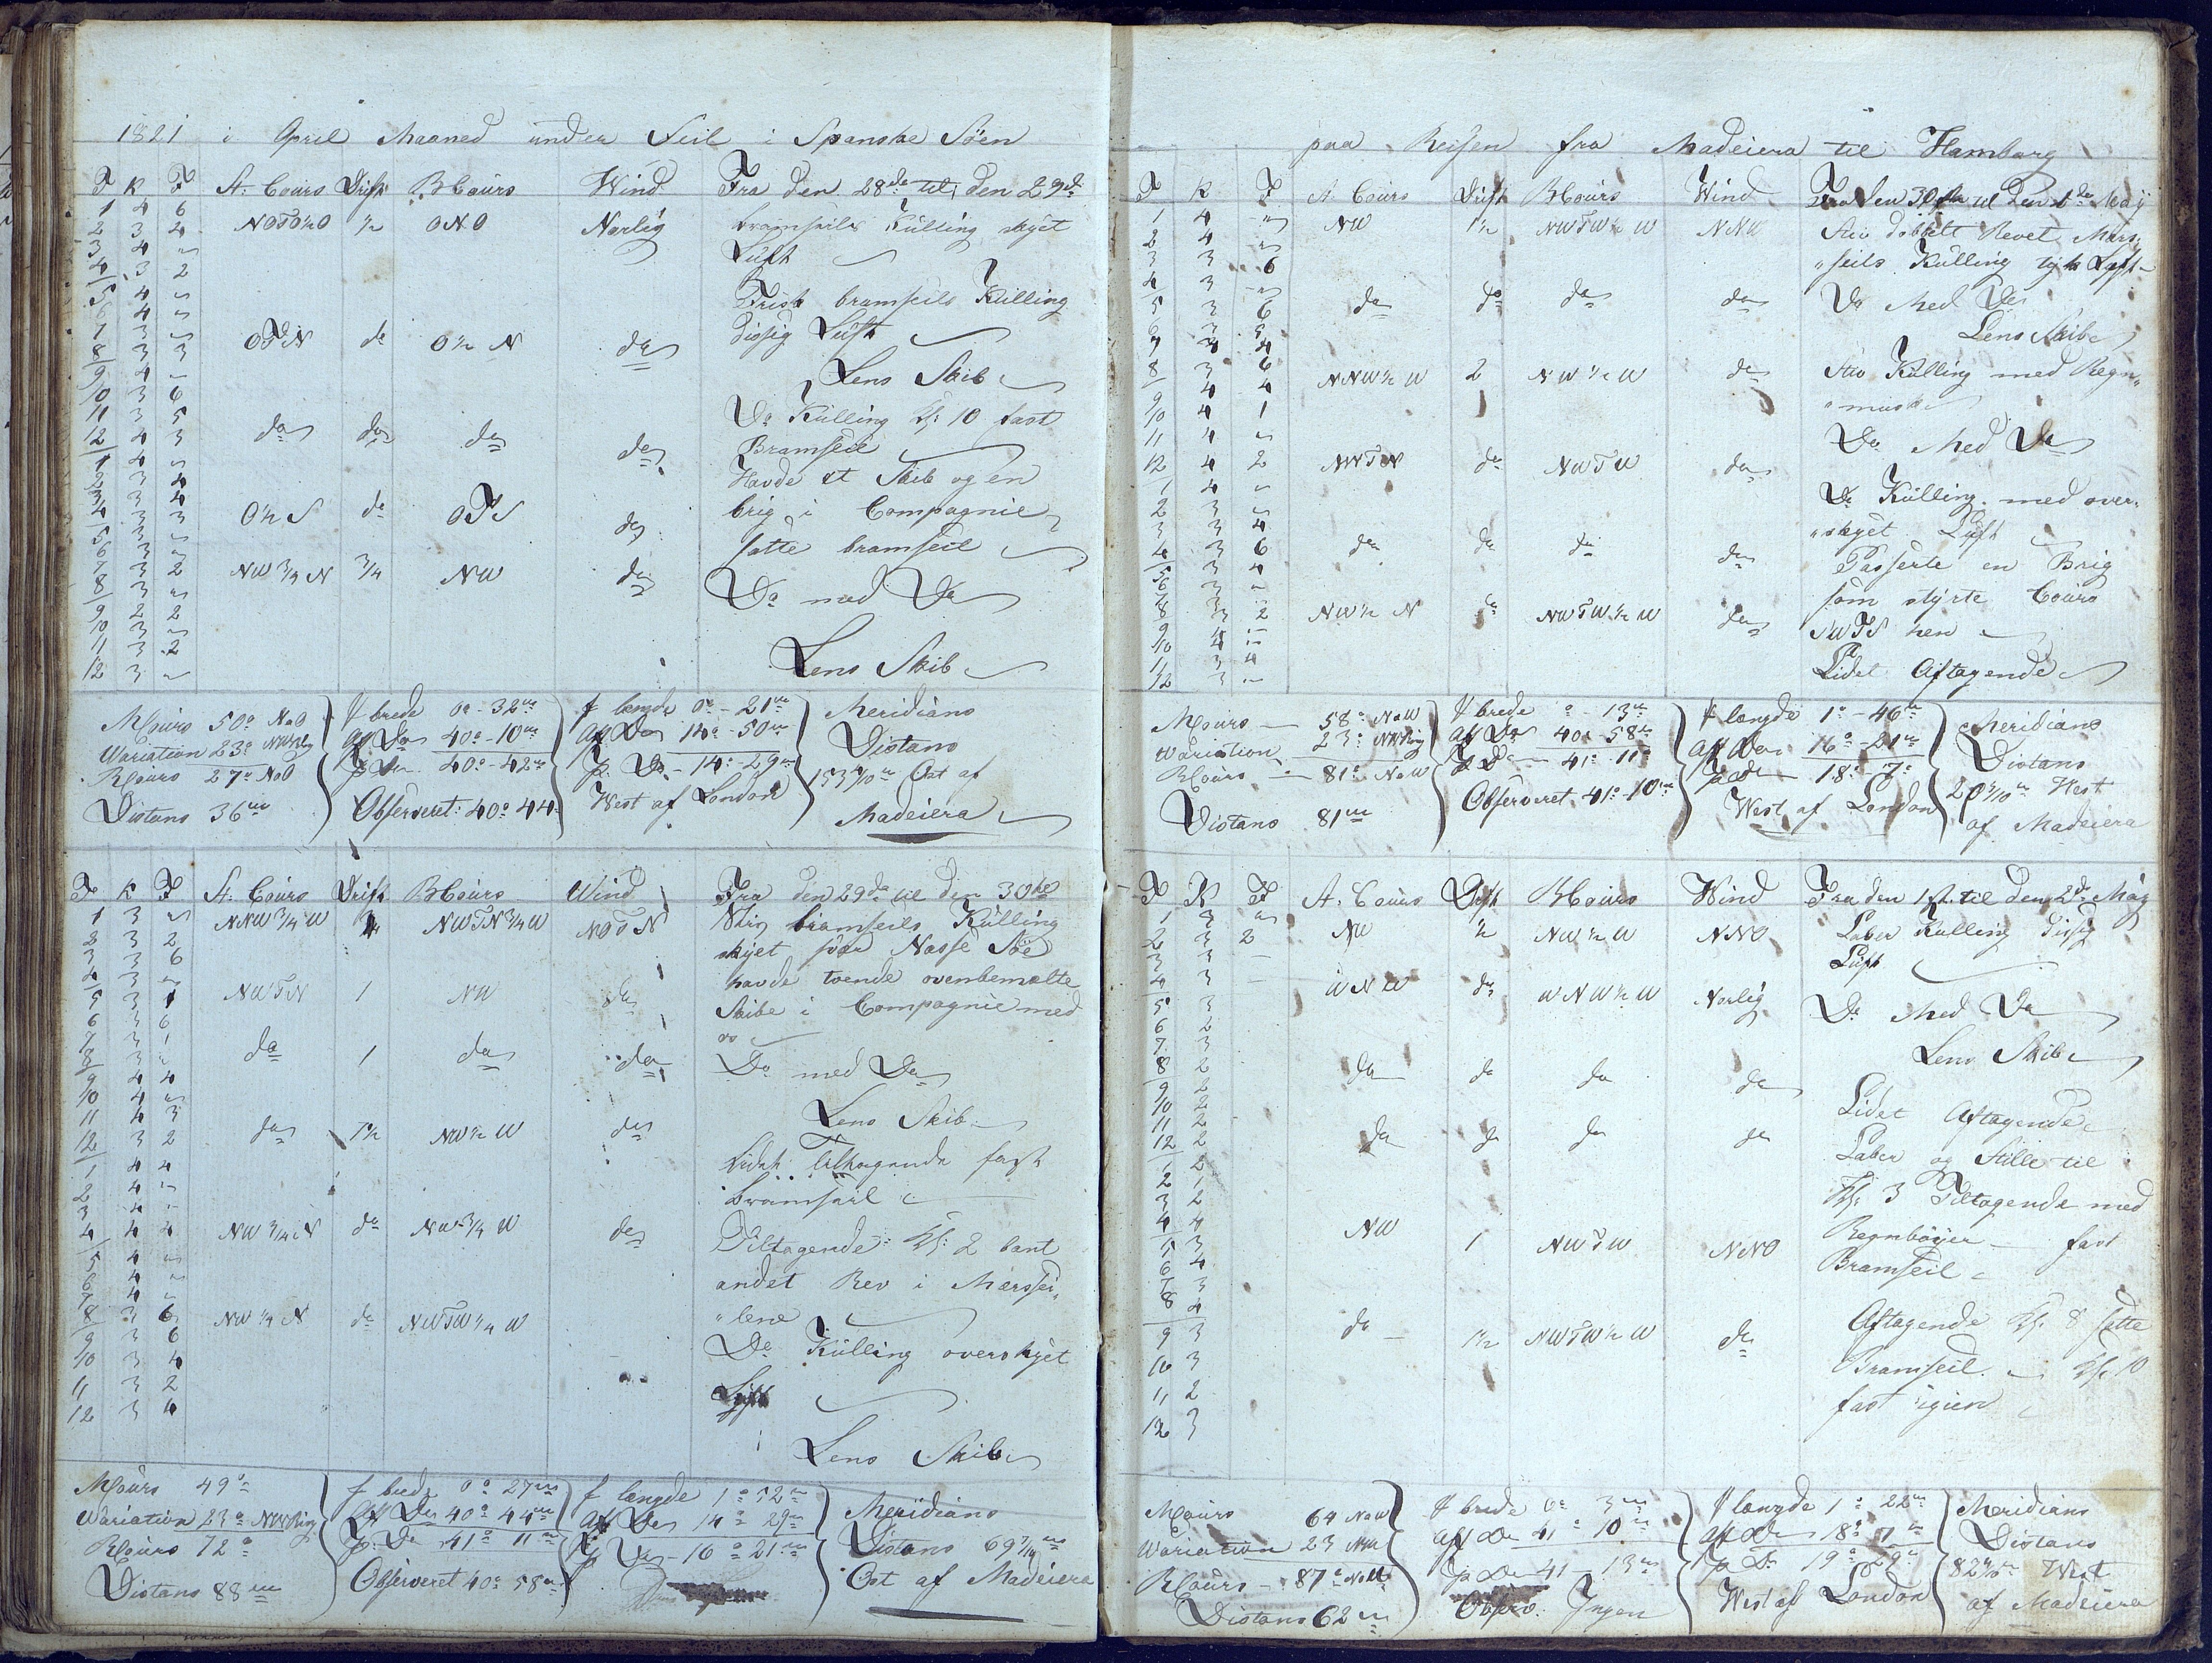 1821 i April Maaned under Seil i Spanske Söen
T K F A: Cours Drift B Cours Wind Fra den 28de til den 29de
1 4 6 NOTO½O ½ ONO Norlig bramseils Külling skyet
2 3 4 Lüft
3 4 "
4 3 2 Frisk bramseils Külling
5 4 " dissig Lüft
6 4 "
7 3 " OTN do O½N do
8 3 3 Lens Skib
9 4 "
10 3 6 Do Külling Kl: 10 fast
11 3 5 Bramseil
12 4 3 do do do do
1 4 " Havde et Skib og en
2 3 4 brig i Compagnie
3 3 4 satte bramseil
4 3 3 O½S do OTS do
5 3 "
6 3 "
7 3 2 NW¾N ¾ NW do Do med Do
8 3 "
9 2 2
10 3 "
11 3 2
12 3 " Lens Skib
M Cours 50° NoO
Wariation 23° NWring
R Cours 27° NoO
Distans 36m
f brede 0° - 32m
aff Do 40° - 10m
p. Do 40° - 42m
Observeret: 40° 44
f længde 0° - 21m
aff Do 14° - 50m
p. Do - 14° - 29m
West af London
Meridians
Distans
153 4/10m Ost af
Madeiera
T K F A: Cours Drift B Cours Wind Fra den 29de til den 30te
1 3 " NNW¾W NWTN¾W NOTN Stiv bramseils Külling
2 3 2 skyet svær Nasse Söe
3 3 6 havde tvende ovenbemelte
4 3 " Skibe i Compagnie med
5 3 1 NWTN 1 NW do os
6 3 6
7 3 1
8 3 " do 1 do do Do med Do
9 4 4
10 4 "
11 4 3 Lens Skib
12 3 2 do 1½ NW½W do
1 4 4 Lidet Tiltagende fast
2 4 " bramseil
3 4 "
4 4 4 NW¾N do NW¾W do Tiltagende: Kl: 2 bant
5 4 " andet Rev i Mersei„
6 4 " „lene
7 4 "
8 3 6 NW¼N do NWTW¼W
9 3 6 Do Külling overskyet
10 3 4 Lüft
11 3 2
12 3 4 Lens Skib
M Cours 49°
Wariation 23° NWring
R Cours 72°
Distans 88m
f brede 0° 27m
aff Do 40° 44m
p. Do 41° 11m
Observeret 40° 58m
f længde 1° 52m
aff Do 14° 29m
p Do - 16° 21m
Meridians
Distans 69 7/10m
Ost af Madeiera
paa Reisen fra Madeiera til Hamborg
T K F A Cours Drift B Cours Wind Fra den 30te til den 1de Maÿ
1 4 " NW 1½ NWTW½W NNO Stiv dobbelt Revet Mers„
2 4 " „seils Külling tyk Lüft
3 3 6
4 3 "
5 3 6 do do do do Do Med Do
6 3 5 Lens Skibe
7 4 4
8 3 6 NNW½W 2 NW½W do Stiv Külling med Regn„
9 4 4 „
10 4 1
11 4 " Do Med Do
12 4 2 NWTN do NWTW do
1 4 " Do Külling med over„
2 3 " „skyet Lüft
3 3 4
4 3 6 do do do do Passerte en Brig
5 3 4 som styrte Cours
6 3 " SWTS hen
8 3 2 NW½N do NWTW½W do
9 4 "
10 4 "
11 3 4 Lidet Aftagende
12 3 "
M Cours 58° NoW
Wariation 23° NWring
R Cours 81° NoW
Distans 81m
f brede ° - 13m
aff Do 40° 58m
p Do - 41° 11m
Observeret 41° 10m
f længde 1° - 46m
aff Do 16° - 21m
p do 18° - 7°
West af London
Meridians
Distans
West
af Madeiera
T K F A. Cours Drift B Cours Wind Fra den 1ste til den 2de Maÿ
1 3 " NW ½ NW½W NNO Laber Külling dissig
2 3 2 Lüft
3 3 -
4 3 - WNW do WNW½W Norlig Do Med Do
5 3
6 2
7 3 Lens Skib
8 2 do do do do
9 2
10 2 Lidet Aftagende
11 2
12 2 do do do do Laber og Stille til
1 2 Kl: 3 Tiltagende med
2 1 Regnböyer fast
3 2 Bramseil
4 4 NW 1 NWTW NNO
5 3
6 4
7 3
8 4 Aftagende Kl: 8 satte
9 3 do 1½ NWTW½W do Bramseil Kl: 10
10 3 fast igien
11 2
12 3
M Cours 64 NoW
Wariation 23 NW
R Cours - 87° NoW
Distans 62m
f brede 0° 3m
aff Do 41° 10m
p Do 41 - 13m
Observ: Ingen
f længde 1° 22m
aff Do 18° 7m
p Do 19° 29m
West af London
Meridians
Distans
West
af Madeiera